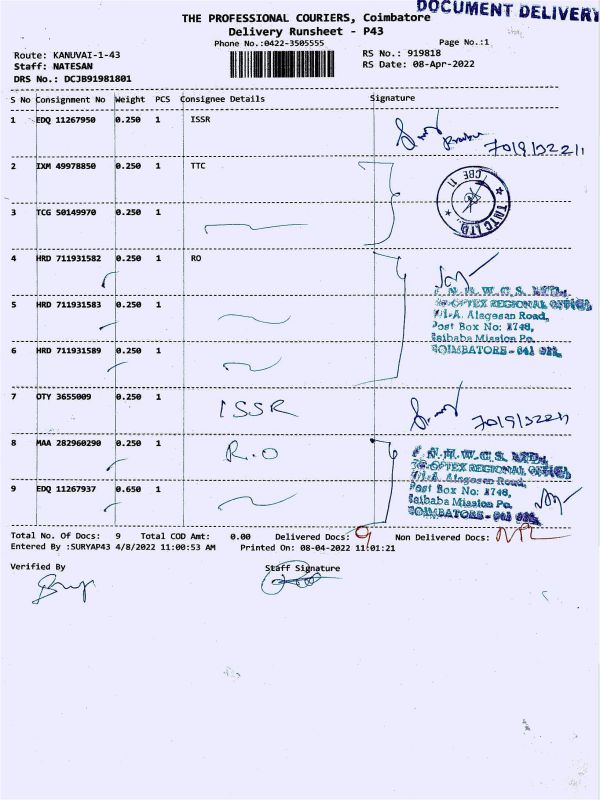 DOCUMENT DELIVERY
THE PROFESSIONAL COURIERS, Coimbatore
Delivery Runsheet - P43
Phone No.:0422-3505555
Page No.:1
Route: KANUVAI-1-43
RS No.: 919818
Staff: NATESAN
RS Date: 08-Apr-2022
DRS No.: DCJB91981801
S No Consignment No Weight PCS Consignee Details Signature
1 EDQ 11267950 0.250 1 ISSR
2 IXM 49978850 0.250 1 TTC
CBE 11
TNTC LTD
3 TCG 50149970 0.250 1
4 HRD 711931582 0.250 1 RO
N.H.W.C.S. LTD.,
CO-OPTEX REGIONAL OFFICE
Alagesan Road,
5 HRD 711931583 0.250 1
Post Box No: 1748,
Saibaba Mission Po.
COIMBATORE - 641
6 HRD 711931589 0.250 1
7 OTY 3655009 0.250 1 ISSR
8 MAA 282960290 0.250 1 R.O
N.H.W.C.S. LTD.,
CO-OPTEX REGIONAL OFFICE
Alagesan Road,
9 EDQ 11267937 0.650 1
Post Box No: 1748,
Saibaba Mission Po.
COIMBATORE - 641
Total No. Of Docs: 9 Total COD Amt: 0.00 Delivered Docs: 9 Non Delivered Docs: NIL
Entered By :SURYAP43 4/8/2022 11:00:53 AM Printed On: 08-04-2022 11:01:21
Verified By Staff Signature